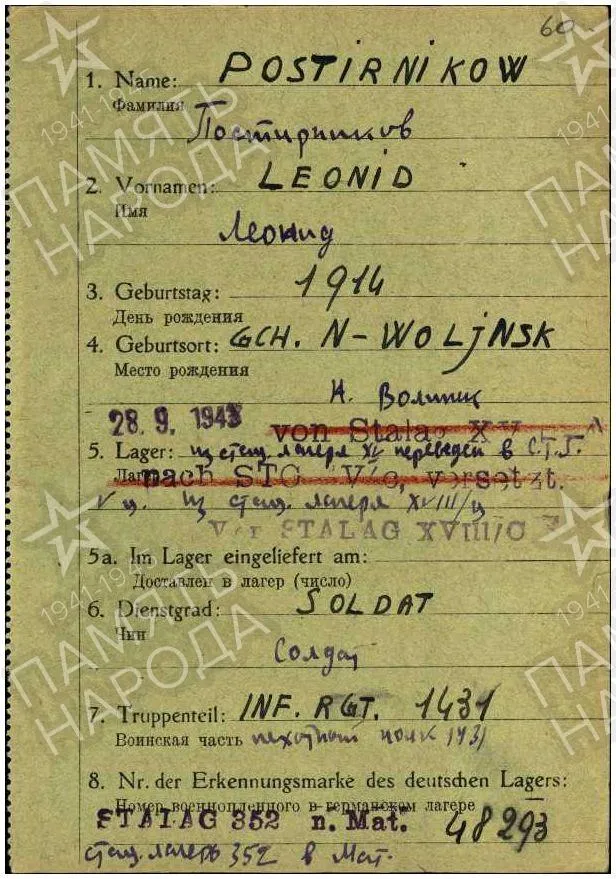 60
1. Name: POSTIRNIKOW
Фамилия
Постирников
2. Vornamen: LEONID
Имя
Леонид
3. Geburtstag: 1914
День рождения
4. Geburtsort: GCH. N-WOLJNSK
Место рождения
Н. Волинск
28. 9. 1943 von Stalag XV
5. Lager: из стац. лагеря XV переведен в С.Т.Г.
Лаг nach STG V/c, versetzt.
V ц. из стац. лагеря XVIII/ц
Von STALAG XVIII/C
5a. Im Lager eingeliefert am:
Доставлен в лагер (число)
6. Dienstgrad: SOLDAT
Чин
Солдат
7. Truppenteil: INF. RGT. 1431
Воинская часть пехотный полк 1431
8. Nr. der Erkennungsmarke des deutschen Lagers:
Номер военнопленного в германском лагере
STALAG 352 n. Mat. 48293
стац. лагерь 352 в Мат.
1941 1945
ПАМЯТЬ
НАРОДА